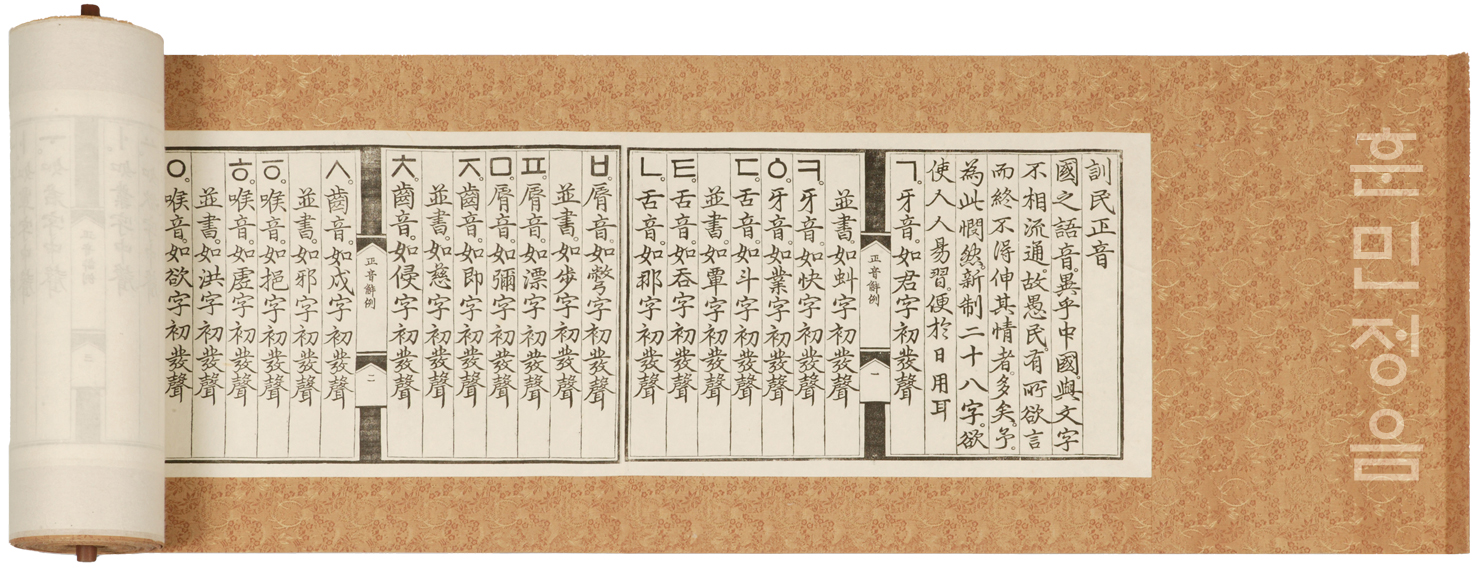 훈민정음
訓民正音
國之語音。異乎中國。與文字
不相流通。故愚民。有所欲言
而終不得伸其情者。多矣。予。
為此憫然。新制二十八字。欲
使人人易習。便於日用耳
ㄱ。牙音。如君字初發聲
正音解例
一
並書。如虯字初發聲
ㅋ。牙音。如快字初發聲
ㆁ。牙音。如業字初發聲
ㄷ。舌音。如斗字初發聲
並書。如覃字初發聲
ㅌ。舌音。如呑字初發聲
ㄴ。舌音。如那字初發聲
ㅂ。脣音。如彆字初發聲
並書。如步字初發聲
ㅍ。脣音。如漂字初發聲
ㅁ。脣音。如彌字初發聲
ㅈ。齒音。如即字初發聲
並書。如慈字初發聲
ㅊ。齒音。如侵字初發聲
正音解例
二
ㅅ。齒音。如戌字初發聲
並書。如邪字初發聲
ㆆ。喉音。如挹字初發聲
ㅎ。喉音。如虛字初發聲
並書。如洪字初發聲
ㅇ。喉音。如欲字初發聲